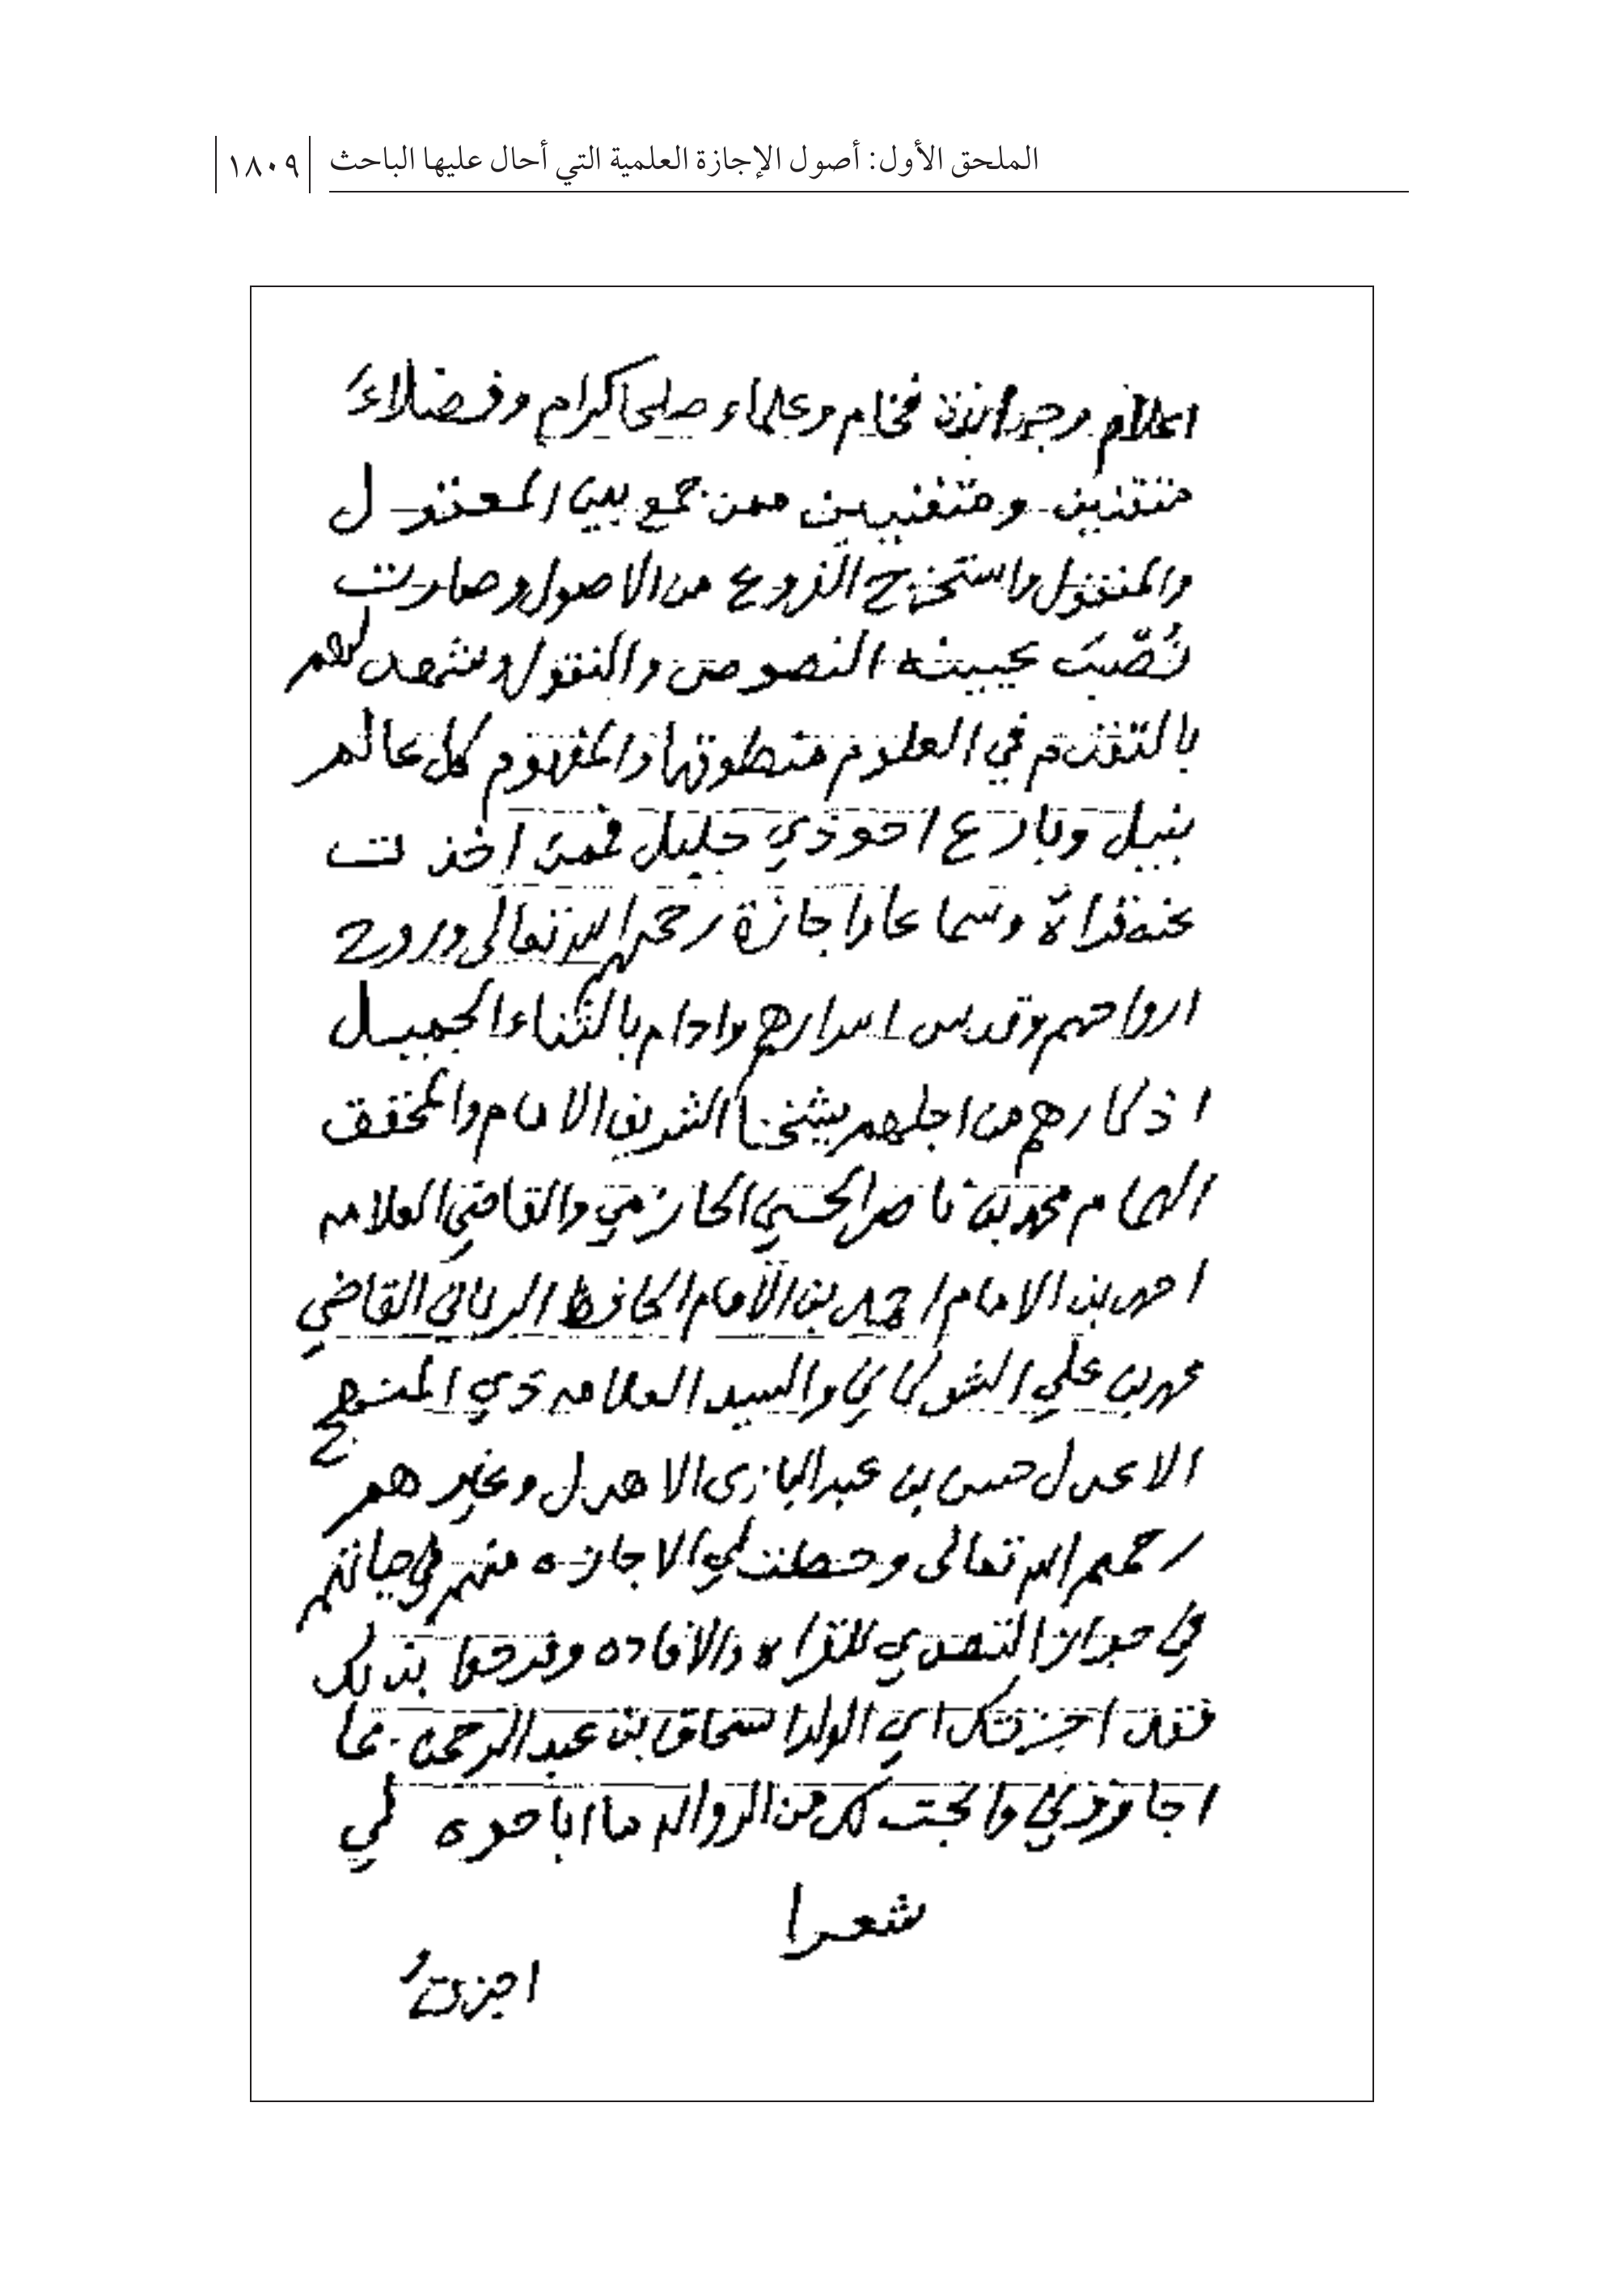 الملحق الأول: أصول الإجازة العلمية التي أحال عليها الباحث
١٨٠٩
اعلام وجهابذة فخام وعلماء صلحا كرام وفضلاءَ
متقنين ومتفننين ممن جمع بين المعقول
والمنقول واستخرج الفروع من الاصول وصارت
نُصّبَ عينيه النصوص والنقول وشهد لهم
بالتقدم في العلوم منطوقها والمفهوم كل عالم
نبيل وبارع احوذي جليل فممن اخذت
عنه قراة وسماعا واجازة رحمهم الله تعالى وروح
ارواحهم وقدس اسرارهم وادام بالثناء الجميل
اذكارهم من اجلهم شيخنا الشريف الامام والمحقق
الهمام محمد بن ناصر الحسني الحازمي والقاضي العلامه
احمد بن الامام احمد بن الامام الحافظ الرباني القاضي
محمد بن علي الشوكاني والسيد العلامه ذي المنهج
الاعدل حسن بن عبد الباري الاهدل وغيرهم
رحمهم الله تعالى وحصلت لي الاجازه منهم في حياتهم
في جواز التصدي للقراه والافاده وفرحوا بذلك
فقد اجزتك اي الولد اسحاق بن عبد الرحمن بما
اجازوني وابحت لك من الروايه ما اباحوه لي
شعرا
اجزتُ